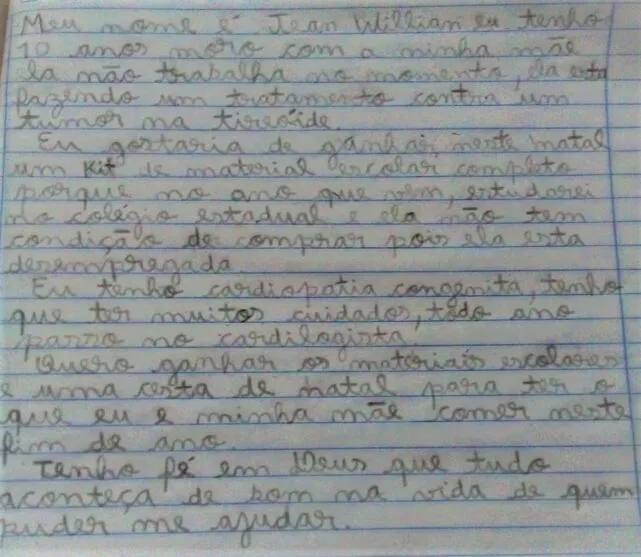 Meu nome é Jean Willian eu tenho
10 anos moro com a minha mãe
ela não trabalha no momento, ela esta
fazendo um tratamento contra um
tumor na tireóide.
Eu gostaria de ganhar, neste natal
um Kit de material escolar completo
porque no ano que vem, estudarei
no colégio estadual e ela não tem
condição de comprar pois ela esta
desempregada.
Eu tenho cardiopatia congenita, tenho
que ter muitos cuidados, todo ano
passo no cardilogista.
Quero ganhar os materiais escolares
e uma cesta de natal para ter o
que eu e minha mãe comer neste
fim de ano.
Tenho fé em Deus que tudo
aconteça de bom na vida de quem
puder me ajudar.